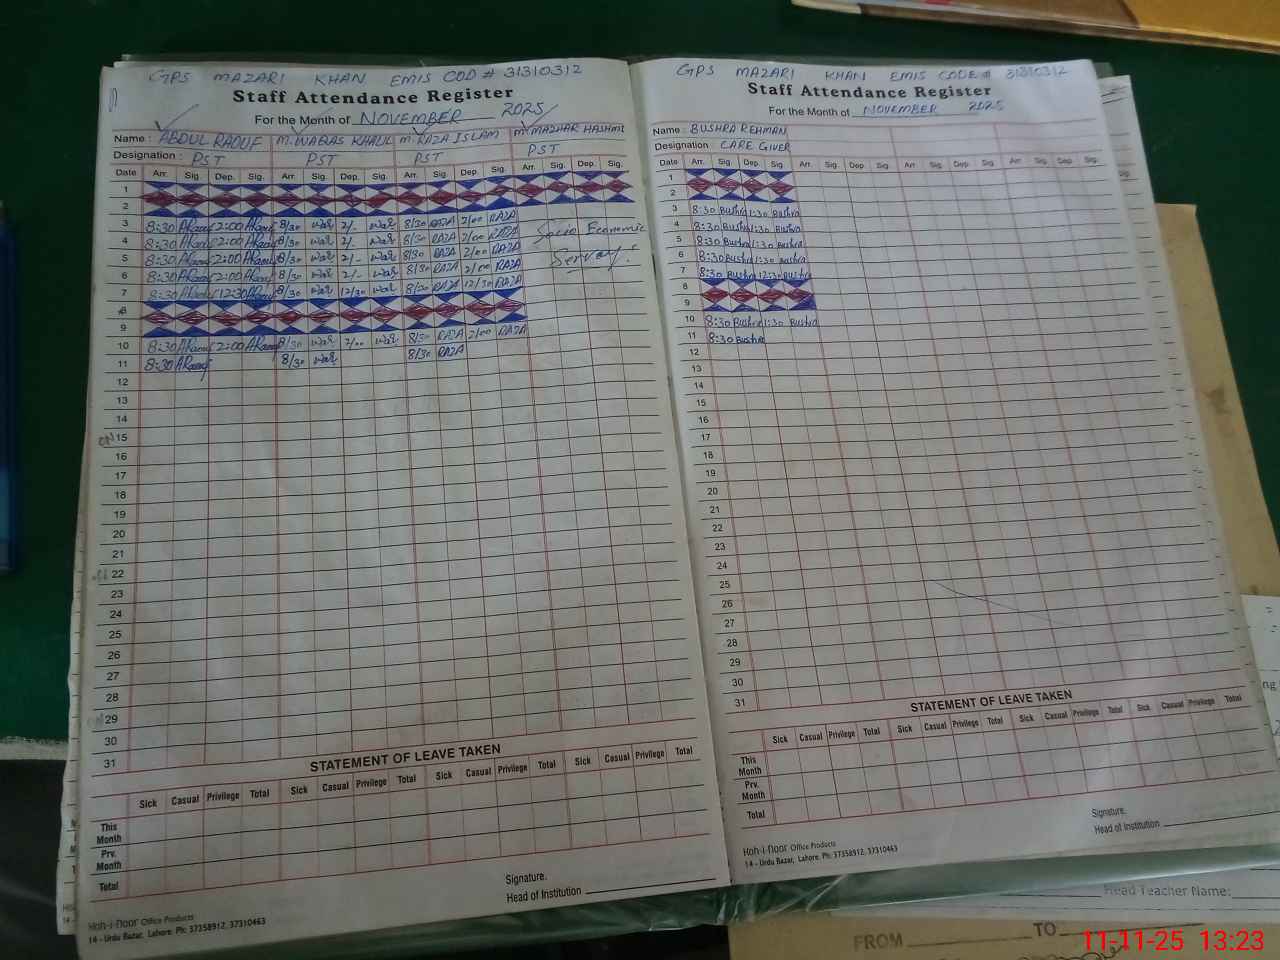 GPS MAZARI KHAN EMIS COD # 31310312
Staff Attendance Register
For the Month of NOVEMBER 2025
Name : ABDUL RAOUF M. WAQAS KHALIL M. RAZA ISLAM M. MAZHAR HASHMI
Designation : PST PST PST PST
Date Arr. Sig. Dep. Sig. Arr. Sig. Dep. Sig. Arr. Sig. Dep. Sig. Arr. Sig. Dep. Sig.
1
2
3 8:30 ARaouf 2:00 ARaouf 8/30 War 2/- War 8/30 RAZA 2/00 RAZA Socio Economic
4 8:30 ARaouf 2:00 ARaouf 8/30 War 2/- War 8/30 RAZA 2/00 RAZA
5 8:30 ARaouf 2:00 ARaouf 8/30 War 2/- War 8/30 RAZA 2/00 RAZA Servay.
6 8:30 ARaouf 2:00 ARaouf 8/30 War 2/- War 8/30 RAZA 2/00 RAZA
7 8:30 ARaouf 12:30 ARaouf 8/30 War 12/30 War 8/30 RAZA 12/30 RAZA
8
9
10 8:30 ARaouf 2:00 ARaouf 8/30 War 2/00 War 8/30 RAZA 2/00 RAZA
11 8:30 ARaouf 8/30 War 8/30 RAZA
12
13
14
15
16
17
18
19
20
21
22
23
24
25
26
27
28
29
30
31
STATEMENT OF LEAVE TAKEN
Sick Casual Privilege Total Sick Casual Privilege Total Sick Casual Privilege Total Sick Casual Privilege Total
This Month
Prv. Month
Total
Signature.
Head of Institution
Koh-i-noor Office Products
14 - Urdu Bazar, Lahore. Ph: 37358912, 37310463
GPS MAZARI KHAN EMIS CODE # 31310312
Staff Attendance Register
For the Month of NOVEMBER 2025
Name : BUSHRA REHMAN
Designation : CARE GIVER
Date Arr. Sig. Dep. Sig. Arr. Sig. Dep. Sig. Arr. Sig. Dep. Sig. Arr. Sig. Dep. Sig.
1
2
3 8:30 Bushra 1:30 Bushra
4 8:30 Bushra 1:30 Bushra
5 8:30 Bushra 1:30 Bushra
6 8:30 Bushra 1:30 Bushra
7 8:30 Bushra 12:30 Bushra
8
9
10 8:30 Bushra 1:30 Bushra
11 8:30 Bushra
12
13
14
15
16
17
18
19
20
21
22
23
24
25
26
27
28
29
30
31
STATEMENT OF LEAVE TAKEN
Sick Casual Privilege Total Sick Casual Privilege Total Sick Casual Privilege Total Sick Casual Privilege Total
This Month
Prv. Month
Total
Signature.
Head of Institution
Koh-i-noor Office Products
14 - Urdu Bazar, Lahore. Ph: 37358912, 37310463
Head Teacher Name:
FROM TO
11-11-25 13:23